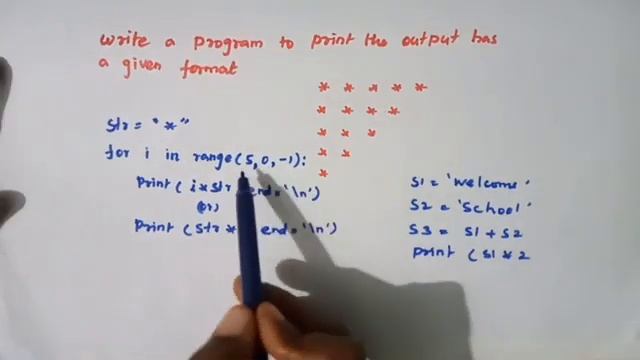 write a program to print the output has
a given format
* * * * *
* * * *
* * *
* *
*
str = "*"
for i in range(5, 0, -1):
print( i*str end='\n')
(or)
print (str * end='\n')
s1 = 'welcome'
s2 = 'school'
s3 = s1 + s2
print (s1 * 2